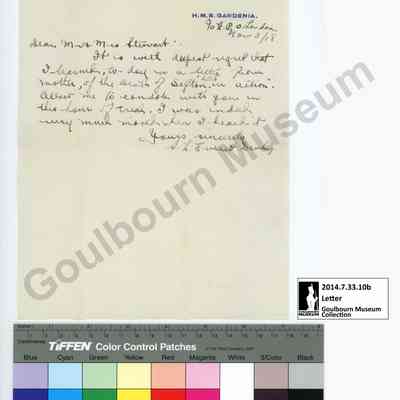 H.M.S. GARDENIA.
℅ G.P.O London
Nov 3/18
Dear Mr & Mrs Stewart:
It is with deepest regret that
I learned, to-day in a letter from
mother, of the death of in action.
Allow me to condole with you in
this hour of trial, I was indeed
very much when I heard it
Yours sincerely
Goulbourn Museum
2014.7.33.10b
Letter
Goulbourn Museum
Collection
MUSEUM
Centimetres
TIFFEN Color Control Patches
Blue Cyan Green Yellow Red Magenta White 3/Color Black